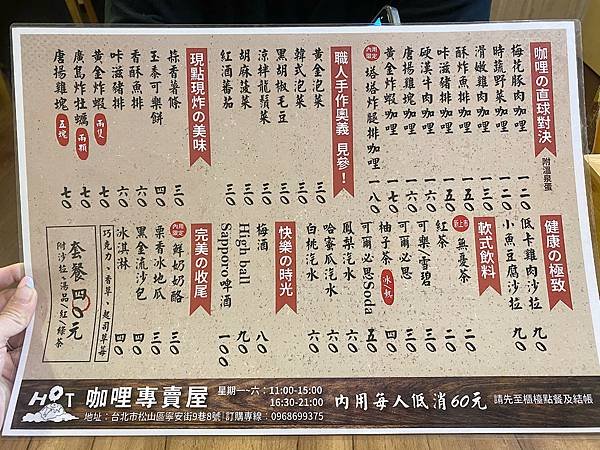 咖哩の直球對決 附溫泉蛋
梅花豚肉咖哩 一二〇
時蔬野菜咖哩 一二〇
滑嫩雞肉咖哩 一三〇
酥炸魚排咖哩 一五〇
咔滋豬排咖哩 一五〇
硬漢牛肉咖哩 一六〇
唐揚雞塊咖哩 一六〇
黃金炸蝦咖哩 一七〇
內用限定 塔塔炸腿排咖哩 一八〇
職人手作奧義 見參！
黃金泡菜 三〇
韓式泡菜 三〇
黑胡椒毛豆 三〇
涼拌龍鬚菜 三〇
胡麻菠菜 三〇
紅酒蕃茄 三〇
現點現炸の美味
蒜香薯條 三〇
玉黍可樂餅 四〇
香酥魚排 六〇
咔滋豬排 六〇
黃金炸蝦 兩隻 七〇
廣島炸牡蠣 兩顆 七〇
唐揚雞塊 五塊 七〇
健康の極致
低卡雞肉沙拉 九〇
小魚豆腐沙拉 九〇
軟式飲料
新上市 無憂茶 二〇
紅茶 二〇
可樂/雪碧 三〇
可爾必思 三〇
柚子茶 冰/熱 四〇
可爾必思Soda 五〇
鳳梨汽水 六〇
哈蜜瓜汽水 六〇
白桃汽水 六〇
快樂の時光
梅酒 八〇
High ball 九〇
Sapporo啤酒 一〇〇
完美の收尾
內用限定 鮮奶奶酪 三〇
栗香冰地瓜 三〇
黑金流沙包 四〇
冰淇淋 四〇
巧克力、香草、起司草莓
套餐 四〇元
附沙拉、湯品/紅/綠茶
HOT 咖哩專賣屋
星期一~六：11:00-15:00
16:30-21:00
地址：台北市松山區寧安街9巷8號 | 訂購專線：0968699375
內用每人低消60元
請先至櫃檯點餐及結帳